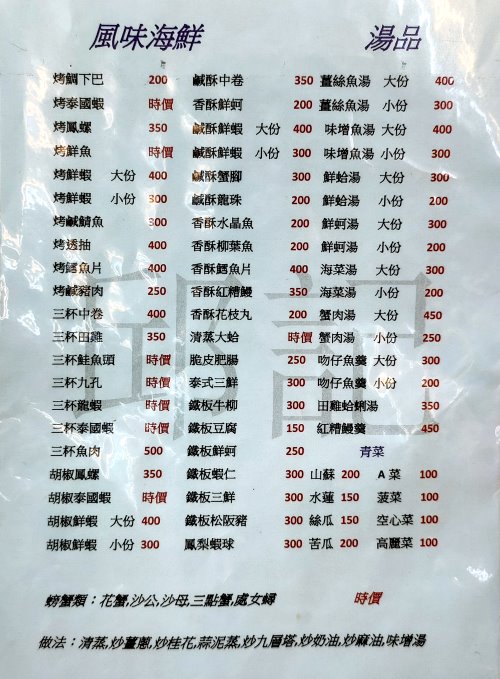 風味海鮮
烤鯛下巴 200
烤泰國蝦 時價
烤鳳螺 350
烤鮮魚 時價
烤鮮蝦 大份 400
烤鮮蝦 小份 300
烤鹹鯖魚 300
烤透抽 400
烤鱈魚片 400
烤鹹豬肉 250
三杯中卷 400
三杯田雞 350
三杯鮭魚頭 時價
三杯九孔 時價
三杯龍蝦 時價
三杯泰國蝦 時價
三杯魚肉 500
胡椒鳳螺 350
胡椒泰國蝦 時價
胡椒鮮蝦 大份 400
胡椒鮮蝦 小份 300
鹹酥中卷 350
香酥鮮蚵 200
鹹酥鮮蝦 大份 400
鹹酥鮮蝦 小份 300
鹹酥蟹腳 300
鹹酥龍珠 200
香酥水晶魚 200
香酥柳葉魚 200
香酥鱈魚片 400
香酥紅糟鰻 350
香酥花枝丸 200
清蒸大蛤 時價
脆皮肥腸 250
泰式三鮮 300
鐵板牛柳 300
鐵板豆腐 150
鐵板鮮蚵 250
鐵板蝦仁 300
鐵板三鮮 300
鐵板松阪豬 300
鳳梨蝦球 300
湯品
薑絲魚湯 大份 400
薑絲魚湯 小份 300
味增魚湯 大份 400
味增魚湯 小份 300
鮮蛤湯 大份 300
鮮蛤湯 小份 200
鮮蚵湯 大份 300
鮮蚵湯 小份 200
海菜湯 大份 300
海菜湯 小份 200
蟹肉湯 大份 450
蟹肉湯 小份 250
吻仔魚羹 大份 300
吻仔魚羹 小份 200
田雞蛤蜊湯 350
紅糟鰻羹 450
青菜
山蘇 200 A菜 100
水蓮 150 菠菜 100
絲瓜 150 空心菜 100
苦瓜 200 高麗菜 100
邱記
螃蟹類：花蟹,沙公,沙母,三點蟹,處女蟳 時價
做法：清蒸,炒薑蔥,炒桂花,蒜泥蒸,炒九層塔,炒奶油,炒麻油,味增湯